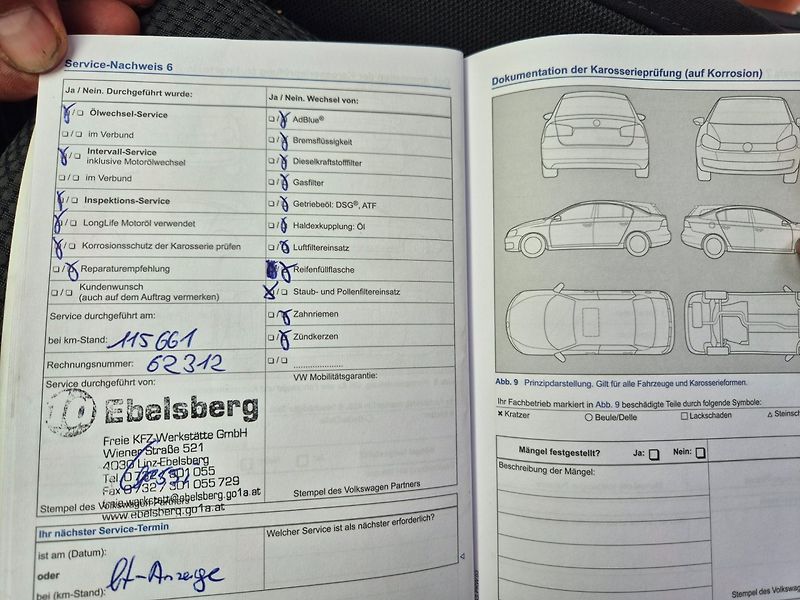 Service-Nachweis 6
Ja / Nein. Durchgeführt wurde:
Ölwechsel-Service
im Verbund
Intervall-Service
inklusive Motorölwechsel
im Verbund
Inspektions-Service
LongLife Motoröl verwendet
Korrosionsschutz der Karosserie prüfen
Reparaturempfehlung
Kundenwunsch
(auch auf dem Auftrag vermerken)
Service durchgeführt am:
bei km-Stand: 115661
Rechnungsnummer: 62312
Service durchgeführt von:
Ebelsberg
Freie KFZ-Werkstätte GmbH
Wiener Straße 521
4030 Linz-Ebelsberg
Fax 0732 / 301 055 729
www.ebelsberg.go1a.at
Ja / Nein. Wechsel von:
AdBlue®
Bremsflüssigkeit
Dieselkraftstofffilter
Gasfilter
Getriebeöl: DSG®, ATF
Haldexkupplung: Öl
Luftfiltereinsatz
Reifenfüllflasche
Staub- und Pollenfiltereinsatz
Zahnriemen
Zündkerzen
VW Mobilitätsgarantie:
Stempel des Volkswagen Partners
Stempel des Volkswagen Partners
Ihr nächster Service-Termin
ist am (Datum):
oder
bei (km-Stand): lt-Anzeige
Welcher Service ist als nächster erforderlich?
Dokumentation der Karosserieprüfung (auf Korrosion)
Abb. 9 Prinzipdarstellung. Gilt für alle Fahrzeuge und Karosserieformen.
Ihr Fachbetrieb markiert in Abb. 9 beschädigte Teile durch folgende Symbole:
Kratzer
Beule/Delle
Lackschaden
Mängel festgestellt? Ja: Nein:
Beschreibung der Mängel:
Stempel des Volkswagen